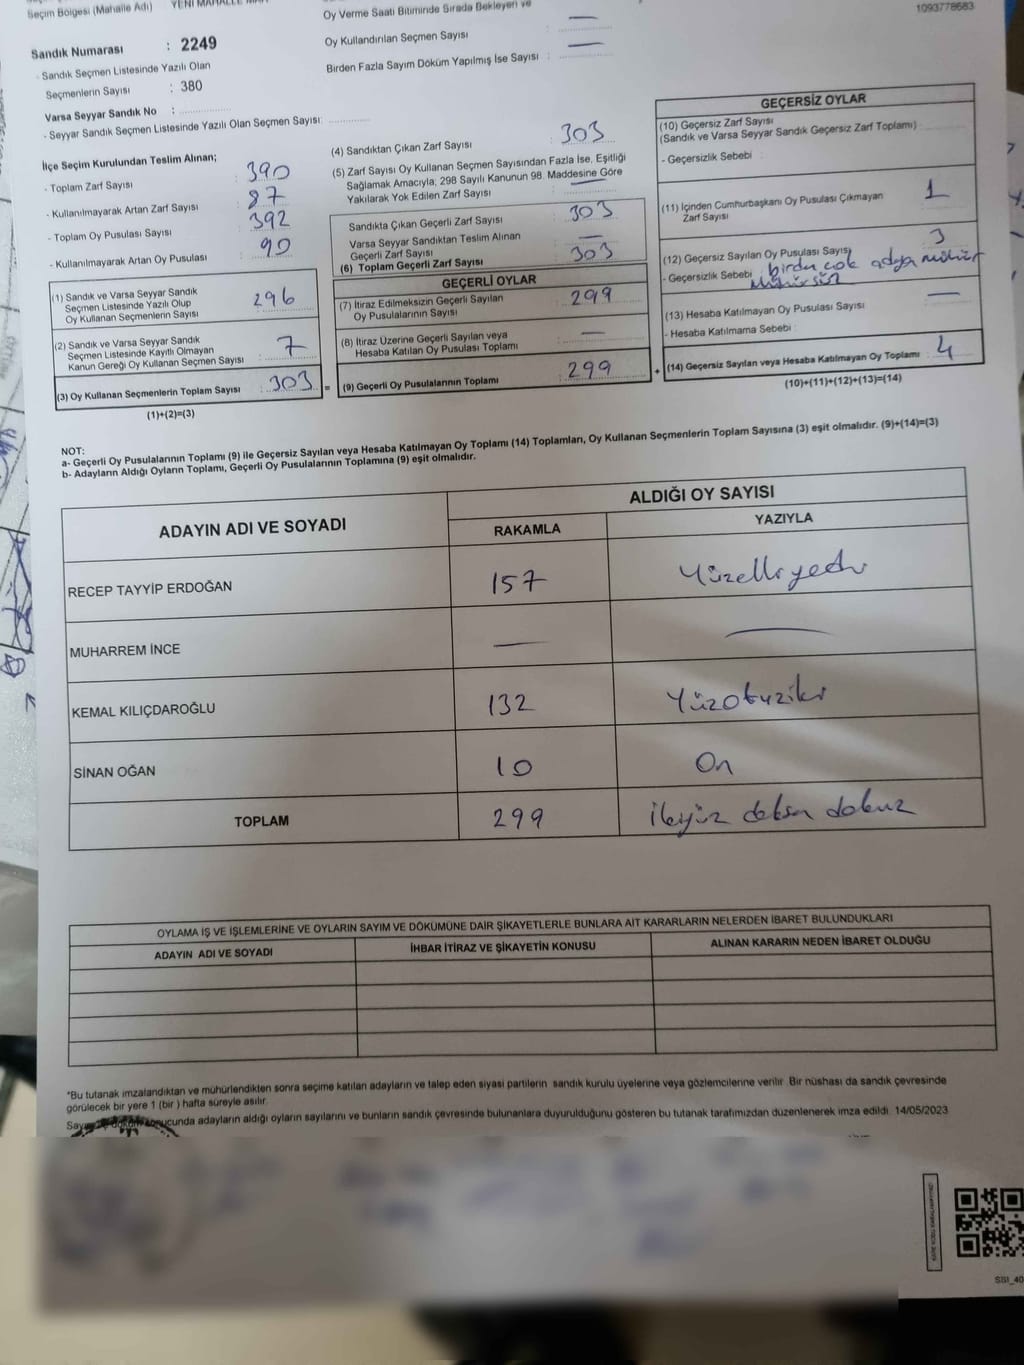 Seçim Bölgesi (Mahalle Adı)
Sandık Numarası : 2249
- Sandık Seçmen Listesinde Yazılı Olan
Seçmenlerin Sayısı : 380
Varsa Seyyar Sandık No :
- Seyyar Sandık Seçmen Listesinde Yazılı Olan Seçmen Sayısı:
Oy Verme Saati Bitiminde Sırada Bekleyen ve
Oy Kullandırılan Seçmen Sayısı : —
Birden Fazla Sayım Döküm Yapılmış İse Sayısı : —
1093778683
İlçe Seçim Kurulundan Teslim Alınan;
- Toplam Zarf Sayısı : 390
- Kullanılmayarak Artan Zarf Sayısı : 87
- Toplam Oy Pusulası Sayısı : 392
- Kullanılmayarak Artan Oy Pusulası : 90
(1) Sandık ve Varsa Seyyar Sandık
Seçmen Listesinde Yazılı Olup
Oy Kullanan Seçmenlerin Sayısı : 296
(2) Sandık ve Varsa Seyyar Sandık
Seçmen Listesinde Kayıtlı Olmayan
Kanun Gereği Oy Kullanan Seçmen Sayısı : 7
(3) Oy Kullanan Seçmenlerin Toplam Sayısı : 303
(1)+(2)=(3)
(4) Sandıktan Çıkan Zarf Sayısı : 303
(5) Zarf Sayısı Oy Kullanan Seçmen Sayısından Fazla İse, Eşitliği
Sağlamak Amacıyla; 298 Sayılı Kanunun 98. Maddesine Göre
Yakılarak Yok Edilen Zarf Sayısı : —
Sandıkta Çıkan Geçerli Zarf Sayısı : 303
Varsa Seyyar Sandıktan Teslim Alınan
Geçerli Zarf Sayısı : —
(6) Toplam Geçerli Zarf Sayısı : 303
GEÇERLİ OYLAR
(7) İtiraz Edilmeksizin Geçerli Sayılan
Oy Pusulalarının Sayısı : 299
(8) İtiraz Üzerine Geçerli Sayılan veya
Hesaba Katılan Oy Pusulası Toplamı : —
= (9) Geçerli Oy Pusulalarının Toplamı : 299
GEÇERSİZ OYLAR
(10) Geçersiz Zarf Sayısı
(Sandık ve Varsa Seyyar Sandık Geçersiz Zarf Toplamı) :
- Geçersizlik Sebebi :
(11) İçinden Cumhurbaşkanı Oy Pusulası Çıkmayan
Zarf Sayısı : 1
(12) Geçersiz Sayılan Oy Pusulası Sayısı : 3
- Geçersizlik Sebebi : birden çok adaya mühür
Mühürsüz
(13) Hesaba Katılmayan Oy Pusulası Sayısı : —
- Hesaba Katılmama Sebebi :
+ (14) Geçersiz Sayılan veya Hesaba Katılmayan Oy Toplamı : 4
(10)+(11)+(12)+(13)=(14)
NOT:
a- Geçerli Oy Pusulalarının Toplamı (9) ile Geçersiz Sayılan veya Hesaba Katılmayan Oy Toplamı (14) Toplamları, Oy Kullanan Seçmenlerin Toplam Sayısına (3) eşit olmalıdır. (9)+(14)=(3)
b- Adayların Aldığı Oyların Toplamı, Geçerli Oy Pusulalarının Toplamına (9) eşit olmalıdır.
ADAYIN ADI VE SOYADI
ALDIĞI OY SAYISI
RAKAMLA YAZIYLA
RECEP TAYYİP ERDOĞAN 157 Yüzelliyedi
MUHARREM İNCE — —
KEMAL KILIÇDAROĞLU 132 Yüzotuziki
SİNAN OĞAN 10 On
TOPLAM 299 İkiyüz doksan dokuz
OYLAMA İŞ VE İŞLEMLERİNE VE OYLARIN SAYIM VE DÖKÜMÜNE DAİR ŞİKAYETLERLE BUNLARA AİT KARARLARIN NELERDEN İBARET BULUNDUKLARI
ADAYIN ADI VE SOYADI İHBAR İTİRAZ VE ŞİKAYETİN KONUSU ALINAN KARARIN NEDEN İBARET OLDUĞU
*Bu tutanak imzalandıktan ve mühürlendikten sonra seçime katılan adayların ve talep eden siyasi partilerin sandık kurulu üyelerine veya gözlemcilerine verilir. Bir nüshası da sandık çevresinde
görülecek bir yere 1 (bir ) hafta süreyle asılır.
adayların aldığı oyların sayılarını ve bunların sandık çevresinde bulunanlara duyurulduğunu gösteren bu tutanak tarafımızdan düzenlenerek imza edildi. 14/05/2023